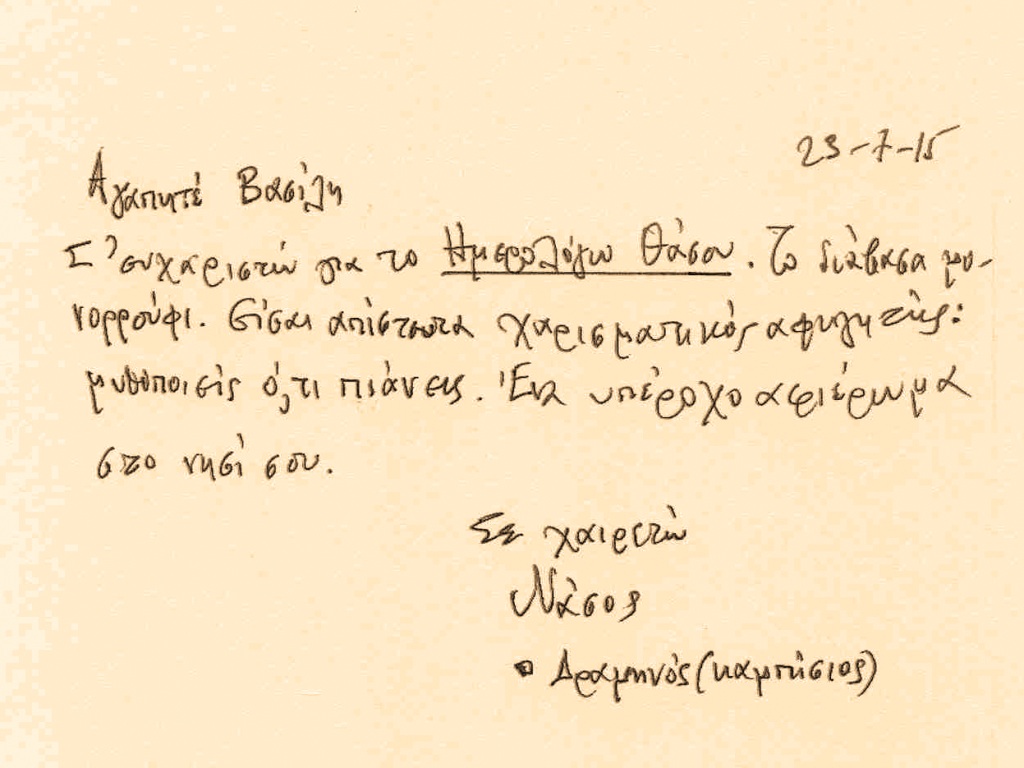 23-7-15
Αγαπητέ Βασίλη
Σ' ευχαριστώ για το Ημερολόγιο Θάσου. Το διάβασα μο-
νορρούφι. Είσαι απίστευτα χαρισματικός αφηγητής:
μυθοποιείς ό,τι πιάνεις. Ένα υπέροχο αφιέρωμα
στο νησί σου.
Σε χαιρετώ
Νάσος
ο Δραμηνός (καμπίσιος)